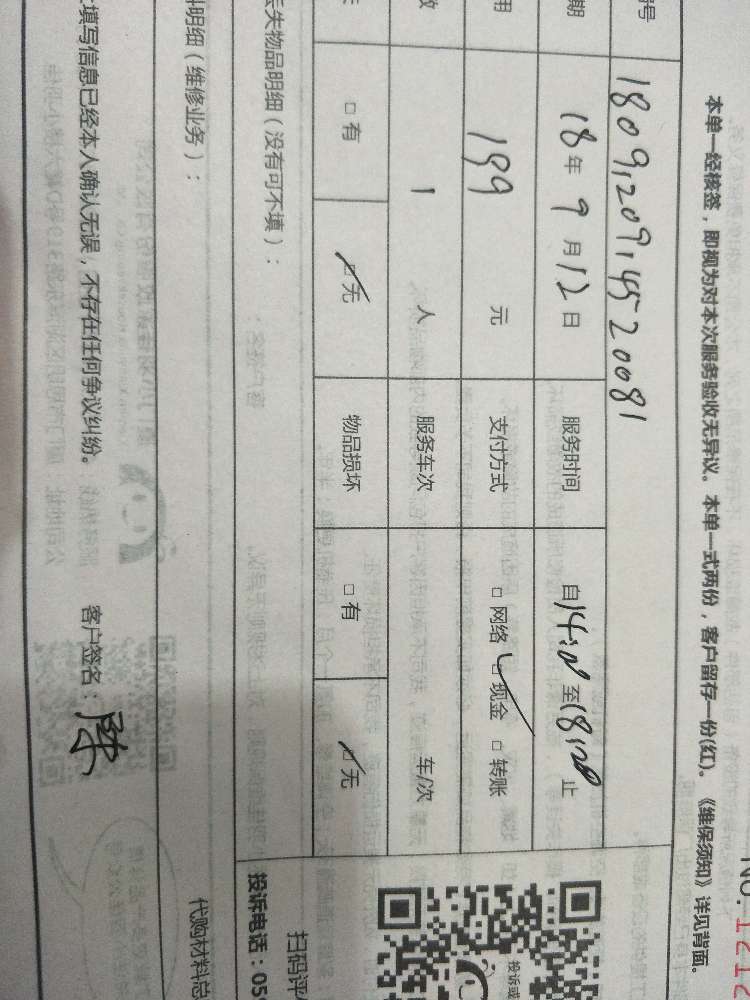 NO.1212
本单一经核签，即视为对本次服务验收无异议。本单一式两份，客户留存一份(红)。《维保须知》详见背面。
号 1809,209,14520081
期 18年9月12日 服务时间 自14:00至18:00止
用 199元 支付方式 □网络 □现金 □转账
数 1人 服务车次 车/次
□有 □无 物品损坏 □有 □无
失物品明细（没有可不填）：
明细（维修业务）：
扫码评
投诉或
投诉电话：05
代购材料总
填写信息已经本人确认无误，不存在任何争议纠纷。 客户签名：